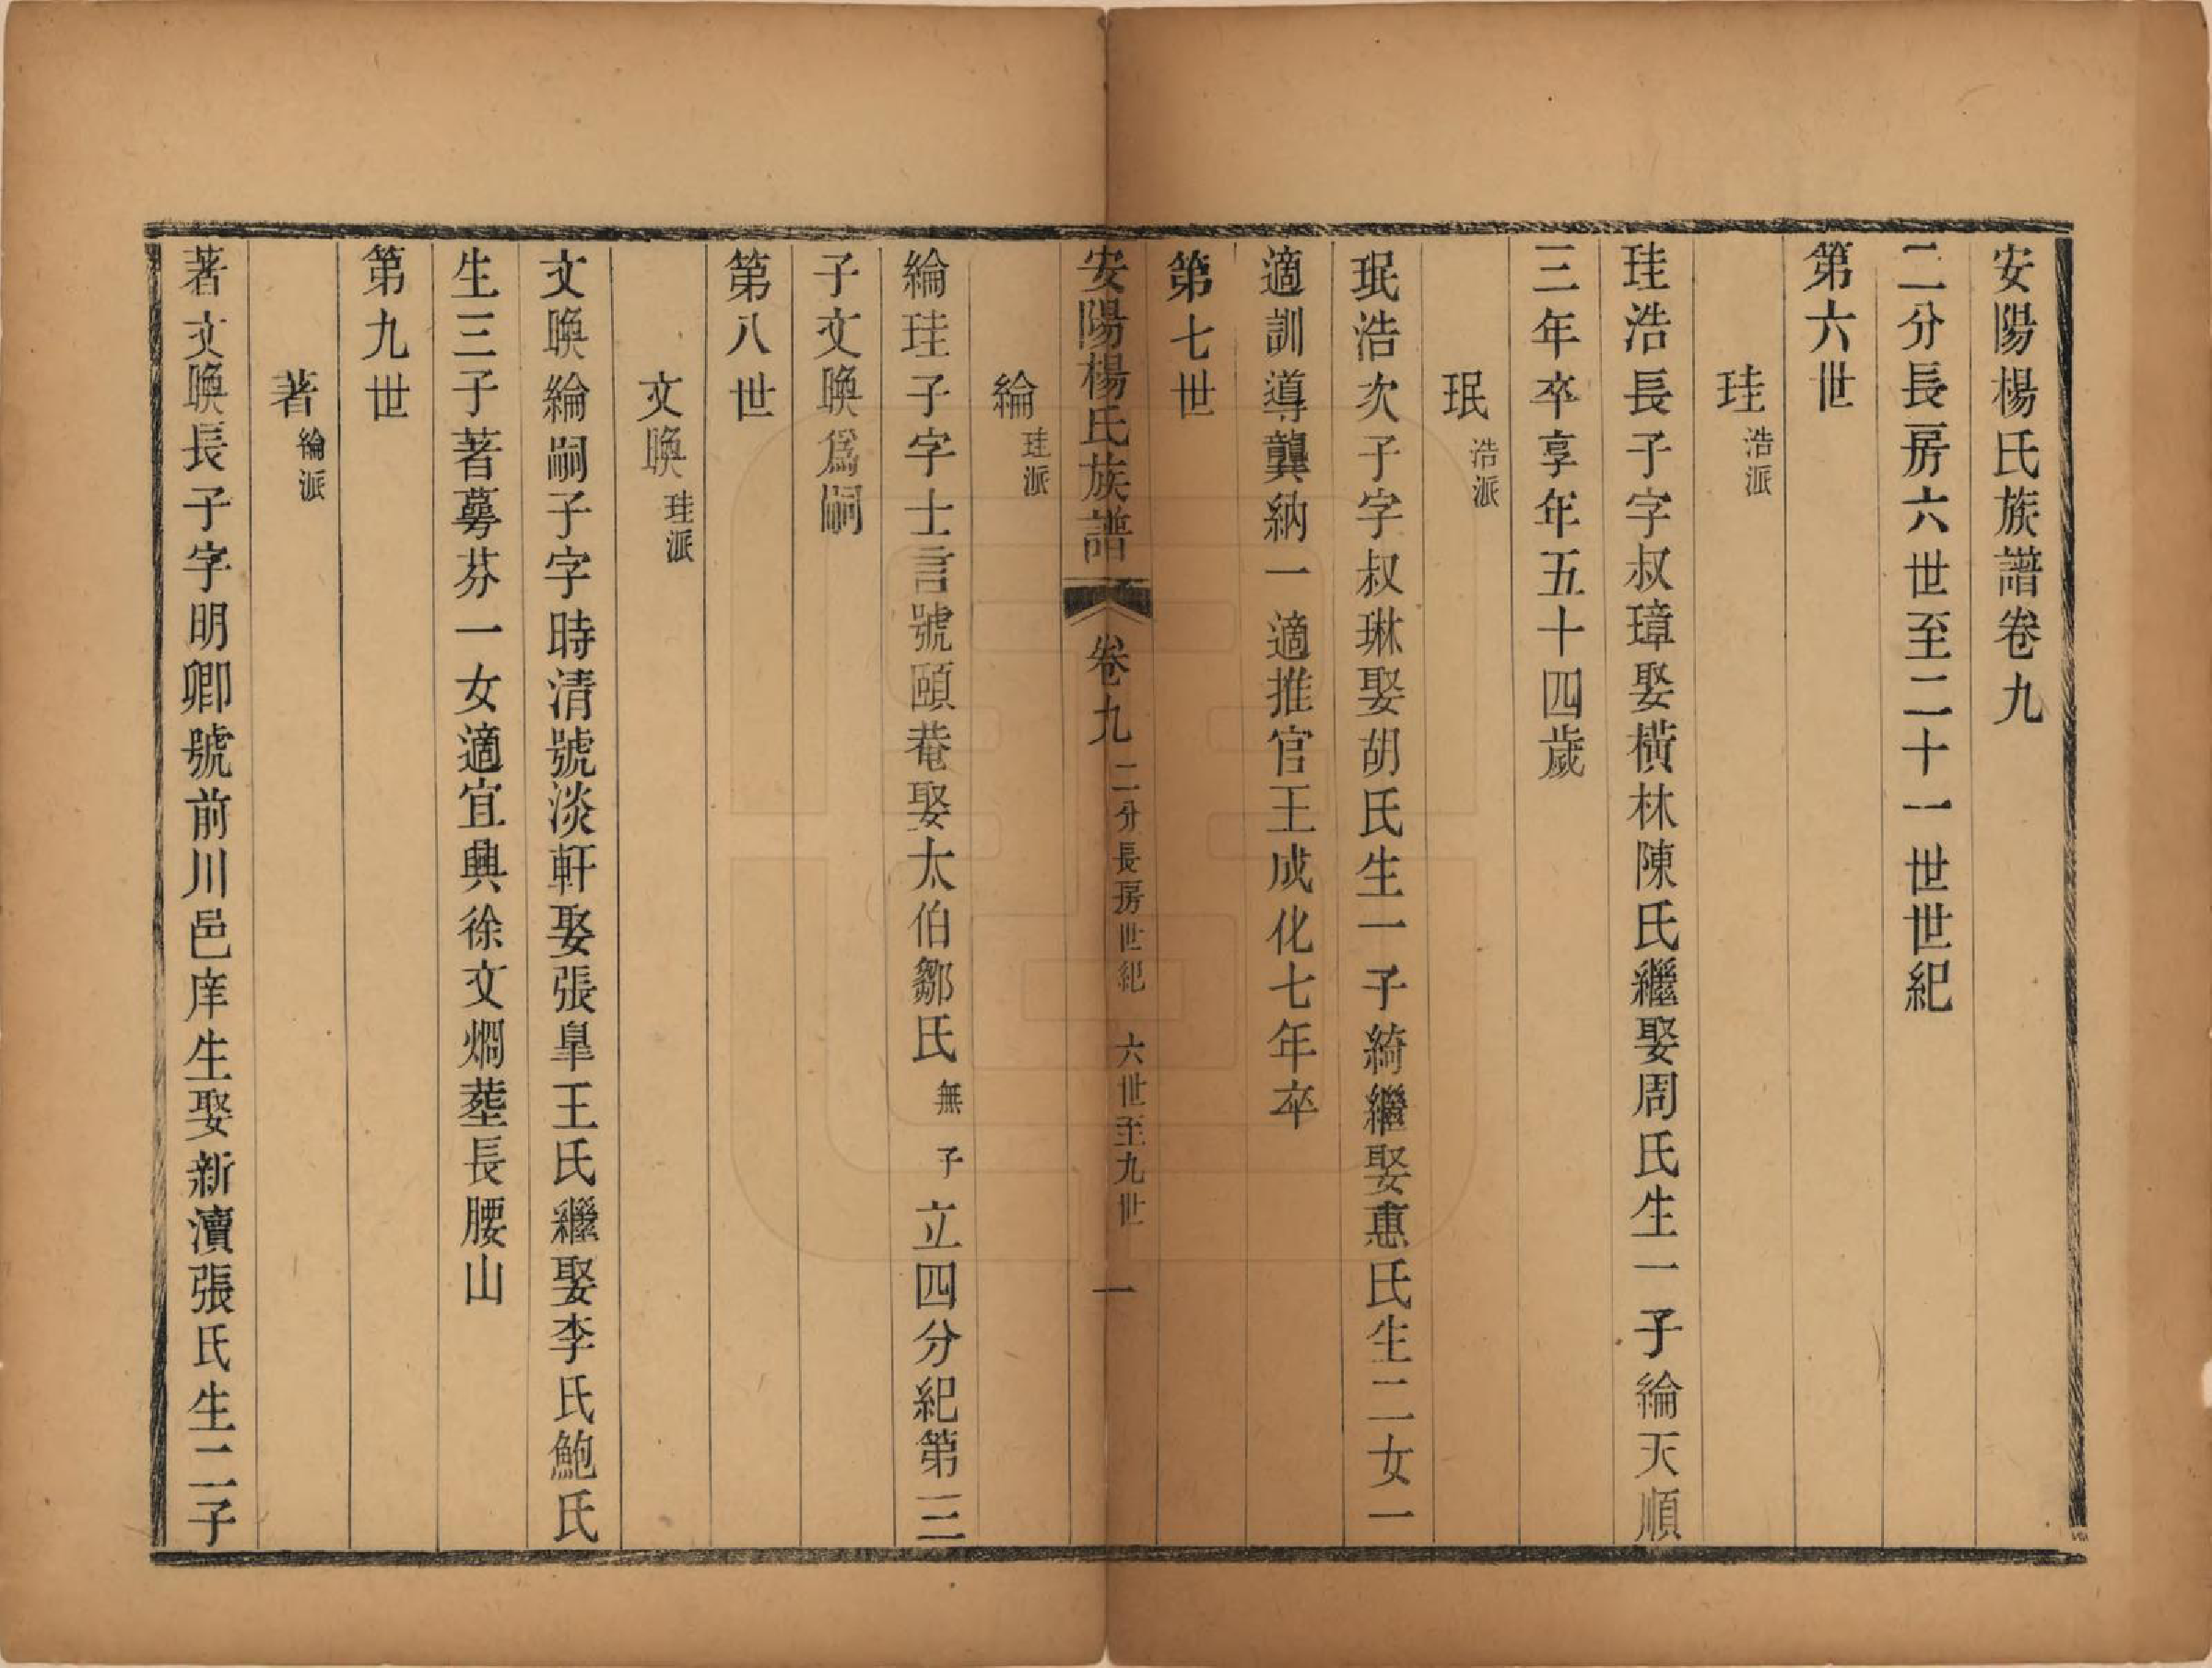 安陽楊氏族譜卷九
二分長房六世至二十一世世紀
第六世
珪浩派
珪浩長子字叔璋娶橫林陳氏繼娶周氏生一子綸天順
三年卒享年五十四歲
珉浩派
珉浩次子字叔琳娶胡氏生一子綺繼娶惠氏生二女一
適訓導龔納一適推官王成化七年卒
第七世
安陽楊氏族譜 卷九 二分長房世紀 六世至九世 一
綸珪派
綸珪子字士言號頤菴娶太伯鄒氏無子立四分紀第三
子文喚爲嗣
第八世
文喚珪派
文喚綸嗣子字時清號淡軒娶張皐王氏繼娶李氏鮑氏
生三子著蕚芬一女適宜興徐文燗塟長腰山
第九世
著綸派
著文喚長子字明卿號前川邑庠生娶新瀆張氏生二子